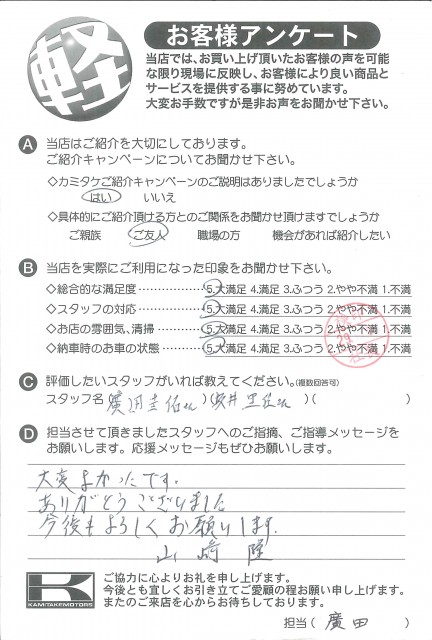 軽
お客様アンケート
当店では、お買い上げ頂いたお客様の声を可能
な限り現場に反映し、お客様により良い商品と
サービスを提供する事に努めています。
大変お手数ですが是非お声をお聞かせ下さい。
A 当店はご紹介を大切にしております。
ご紹介キャンペーンについてお聞かせ下さい。
◇カミタケご紹介キャンペーンのご説明はありましたでしょうか
はい いいえ
◇具体的にご紹介頂ける方とのご関係をお聞かせ頂けますでしょうか
ご親族 ご友人 職場の方 機会があれば紹介したい
B 当店を実際にご利用になった印象をお聞かせ下さい。
◇総合的な満足度……………5.大満足 4.満足 3.ふつう 2.やや不満 1.不満
◇スタッフの対応……………5.大満足 4.満足 3.ふつう 2.やや不満 1.不満
◇お店の雰囲気、清掃………5.大満足 4.満足 3.ふつう 2.やや不満 1.不満
◇納車時のお車の状態………5.大満足 4.満足 3.ふつう 2.やや不満 1.不満
C 評価したいスタッフがいれば教えてください。(複数回答可)
スタッフ名(廣田圭佑さん)(安井 さん)( )
D 担当させて頂きましたスタッフへのご指摘、ご指導メッセージを
お願いします。応援メッセージもぜひお願いします。
大変よかったです。
ありがとうございました
今後もよろしくお願いします。
山﨑 隆
K
KAMITAKEMOTORS
ご協力に心よりお礼を申し上げます。
今後とも宜しくお引き立てご愛顧の程お願い申し上げます。
またのご来店を心からお待ちしております。
担当( 廣田 )